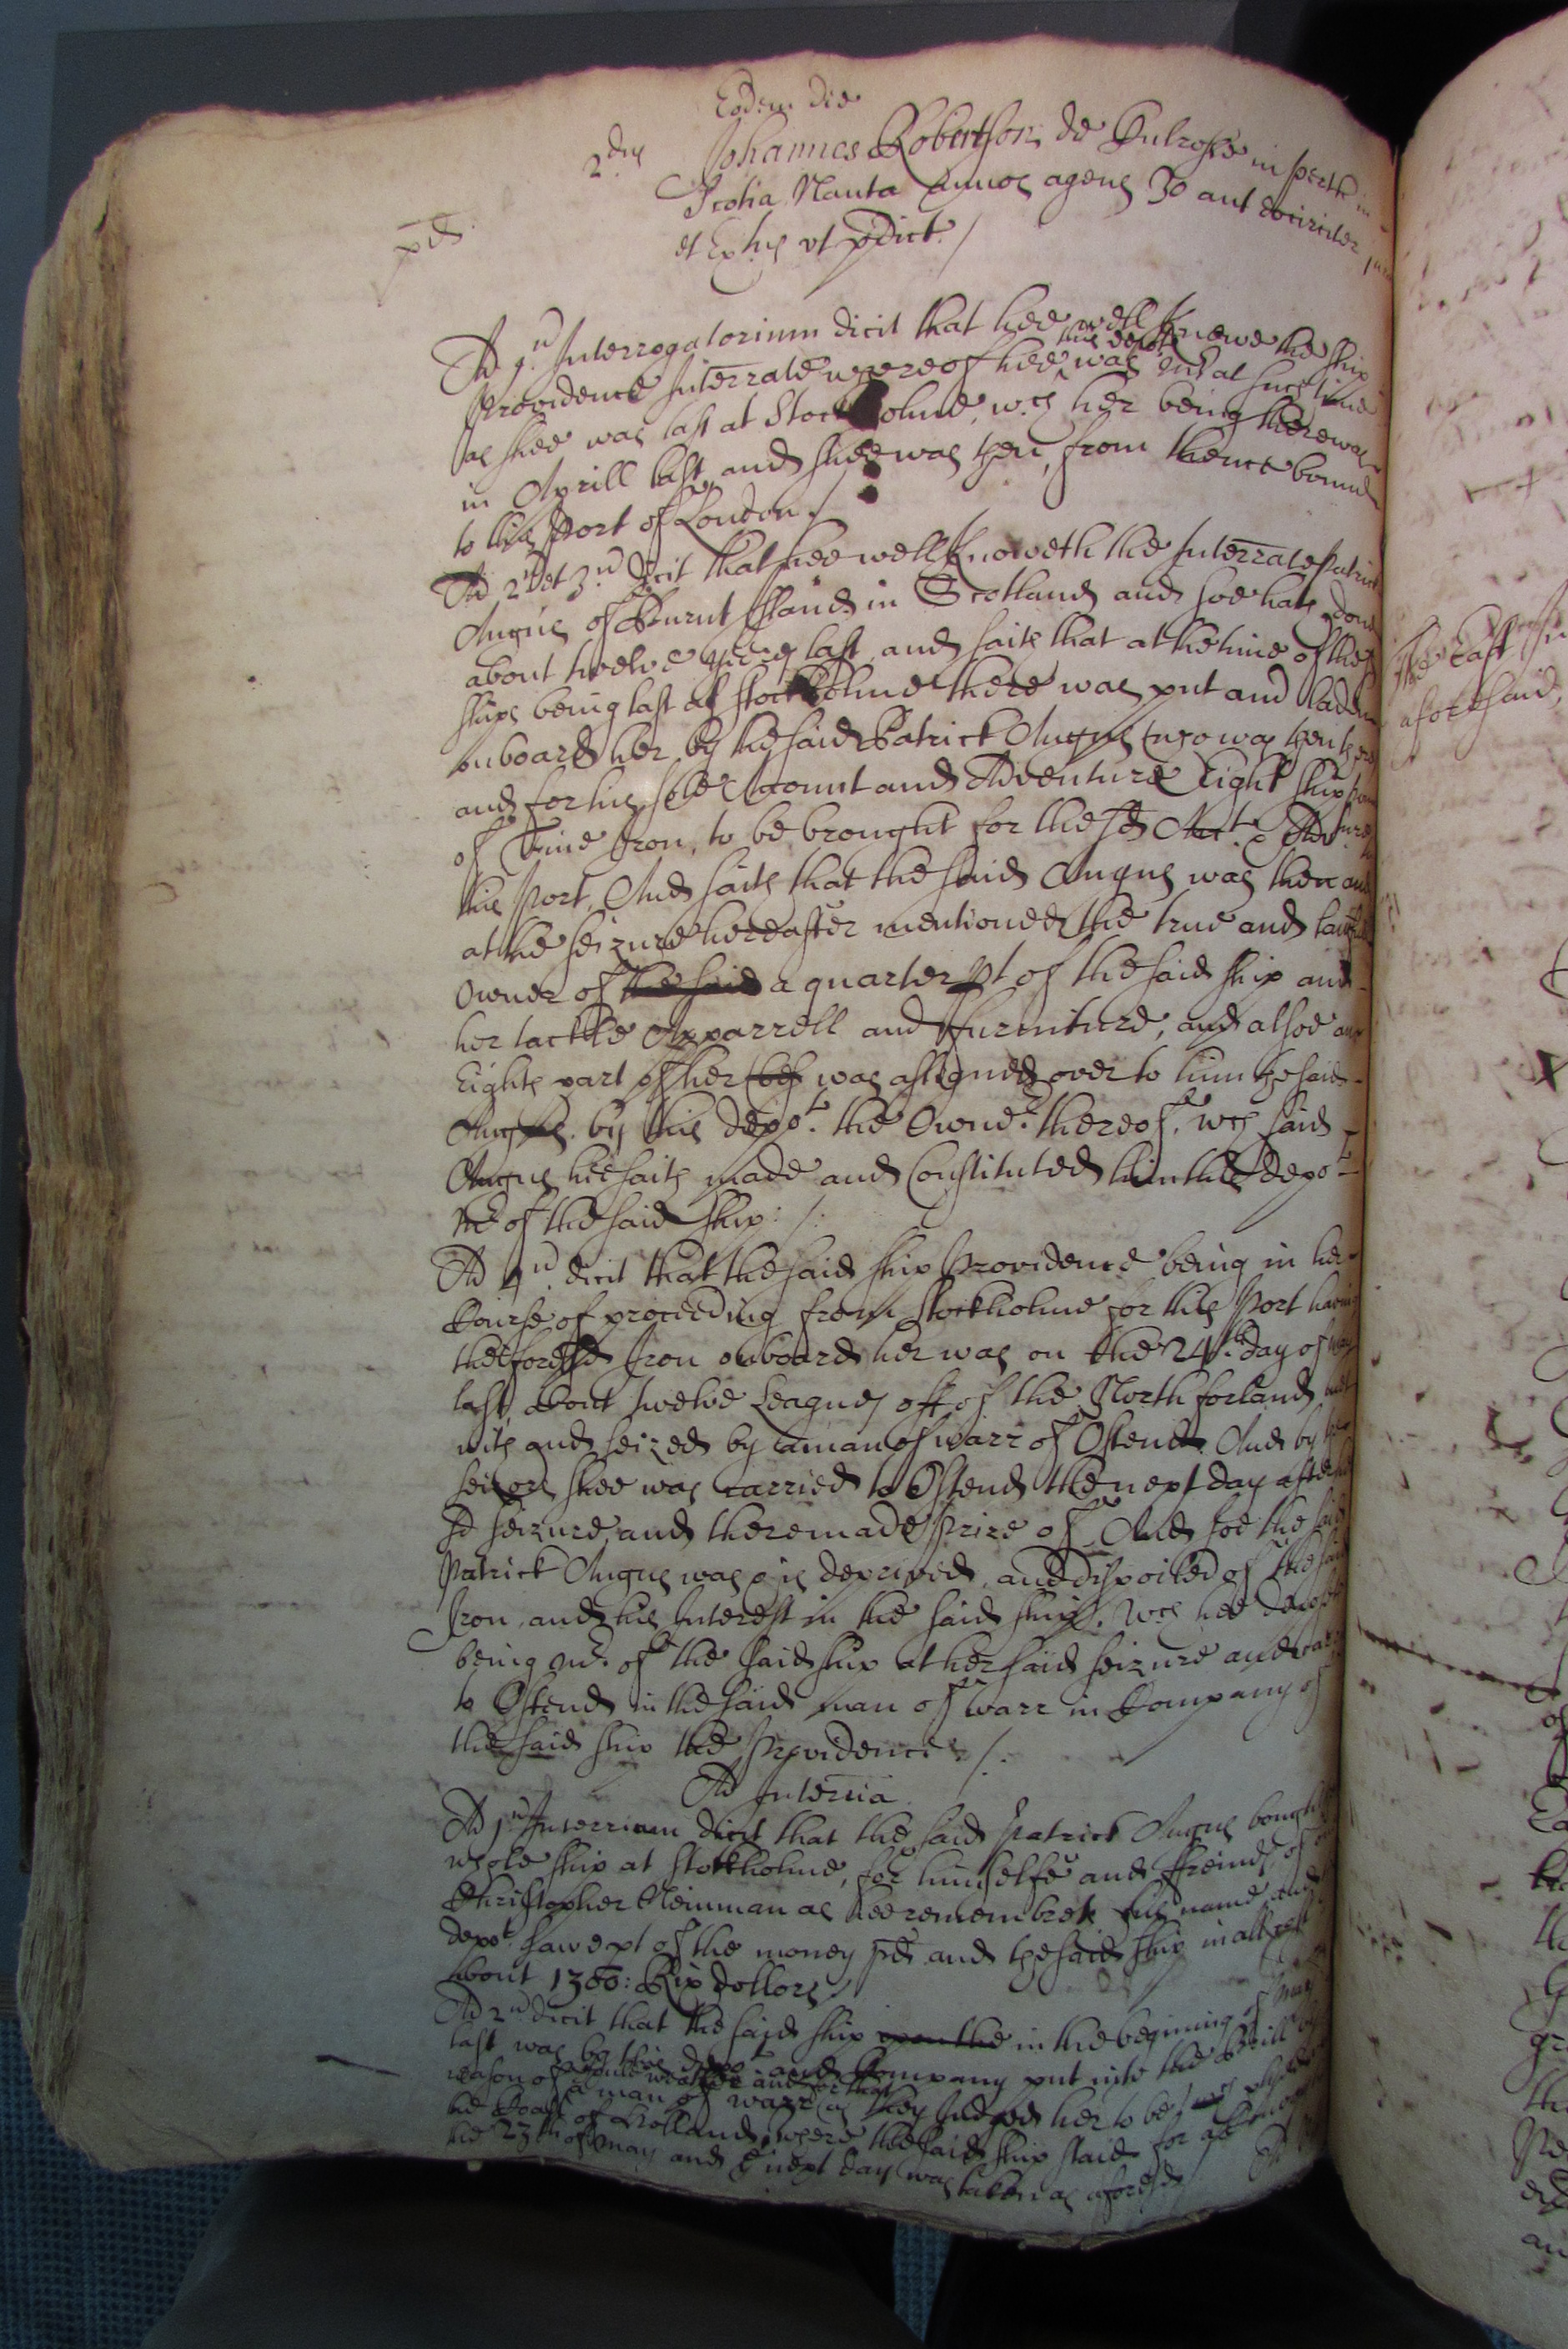 Eodem die
2dus Johannes Robertson de Culrosse in perth in
Scotia Nauta annos agens 30 aut eocirciter
pred.
et Exhus ut pdict./
Ad 1.u Interrogatorium dicit that hee well knewe the ship
Providence Interrate whereof hee this depot was Mr at such time
as shee was last at Stockholme, wch her being there was
in Aprill last and shee was then from thence bound
to this Port of London./
Ad 2u et 3.u dicit that hee well knoweth the Interrate Patrick
Angus of Burnt Island in Scotland and soe hath done
about twelve yeeres last, and saith that at the time of the sd
ships being last at Stockholme there was put and laden
onboard her by the said Patrick Angus (who was then there
and for his sole Account and Adventure Eight ship pound
of Fine Iron, to be brought for the sd Acct. & Adventure
this Port, And saith that the said Angus was then and
at the seizure hereafter mentioned the true and lawfull
Owner of the said a quarter pt of the said ship and
her tackle Apparrell and Furniture, and alsoe an
Eighth part of her was assigned over to him the said
Angus by this depot. the Owner. thereof, wch said
Angus hee saith made and Constituted him this depot
Mr of the said ship: /.
Ad 4.u dicit that the said ship Providence being in her
Course of proceeding from Stockholme for this Port having
the foresd Iron onboard her was on the 24th. day of May
last, about twelve Leagues off of the North forland mett
with and seized by a man of warr of Ostend. And by the
seizors shee was carried to Ostend the next day after the
sd seizure and there made Prize of, And soe the said
Patrick Angus was & is deprived, and dispoiled of the said
Iron, and his Interest in the said ship. wch hee deposeth
being Mr. of the said ship at her said seizure and carried
to Ostend in the said man of warr in Company of
the said ship the Providence. /.
Ad Interria.
Ad 1.u Interrium dicit that the said Patrick Angus bought
whole ship at Stockholme, for himselfe and Freinds, of
Christopher Neinman as hee remembreth his name and
depot. saw pt of the money pd. and the said ship in all cost
about 1300: Rix dollors./
Ad 2.u dicit that the said ship upon the in the beginning of May
last was by this depot and Company put into the Brill by
reason of foule weather and for that
a man of warr (as they Judged her to be)
the Coast of Holland, where the said ship staid
the 23th of May and ye next day was taken as aforesd
The last In
aforesaid,